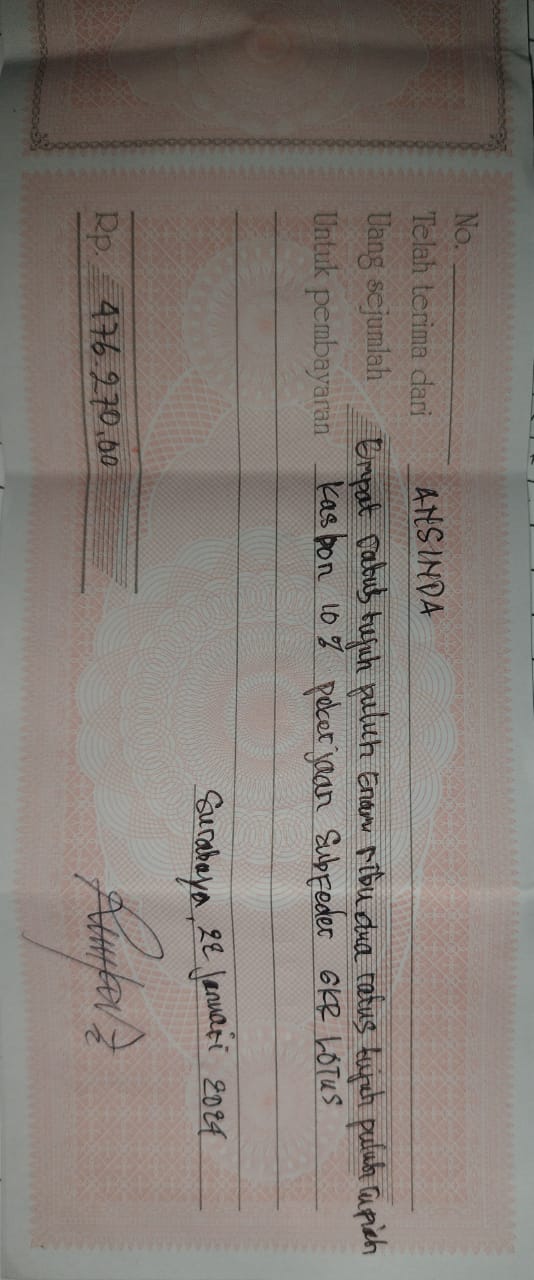 No.
Telah terima dari ANSINDA
Uang sejumlah Empat ratus tujuh puluh Enam ribu dua ratus tujuh puluh rupiah
Untuk pembayaran kas bon 10 % pekerjaan Subfeder GKR LOTUS
Surabaya, 22 Januari 2024
Rp. 476.270,00